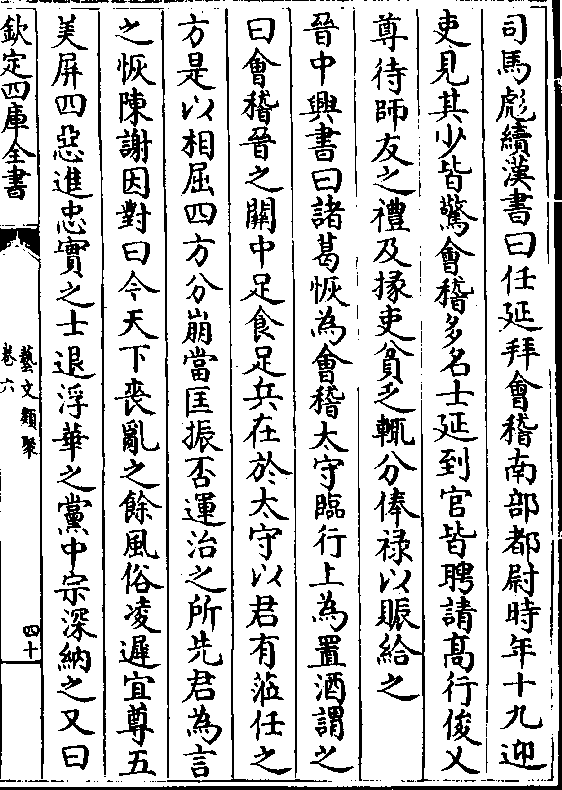 司馬彪續漢書曰任延拜會稽南部都尉時年十九迎
吏見其少皆驚會稽多名士延到官皆聘請髙行俊乂
尊待師友之禮及掾吏貧乏輒分俸禄以賑給之
晉中興書曰諸葛恢為會稽太守臨行上為置酒謂之
曰會稽晉之關中足食足兵在於太守以君有蒞任之
方是以相屈四方分崩當匡振否運治之所先君為言
之恢陳謝因對曰今天下喪亂之餘風俗凌遲宜尊五
美屏四惡進忠實之士退浮華之黨中宗深納之又曰
欽定四庫全書
藝文類聚
卷六
四十